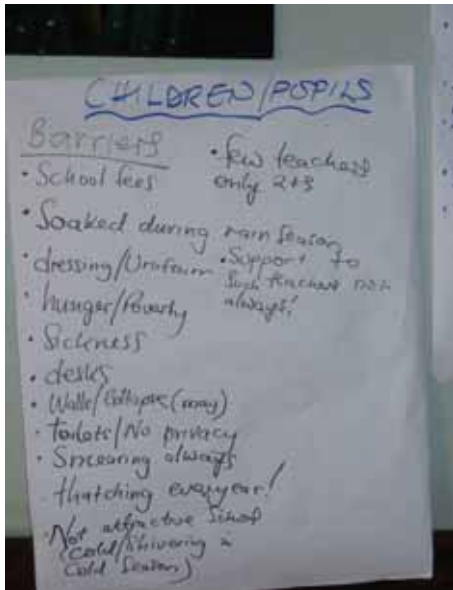 CHILDREN/PUPILS
Barriers
• School fees
• Soaked during rain season
• dressing/Uniform
• hunger/Poverty
• Sickness
• desks
• Walls/Collapse (may)
• toilets/No privacy
• Smearing always
thatching everyyear!
• Not attractive School
(Cold/Shivering in
Cold Season)
• few teachers
only 2+3
• Support to
Such teachers not
always!